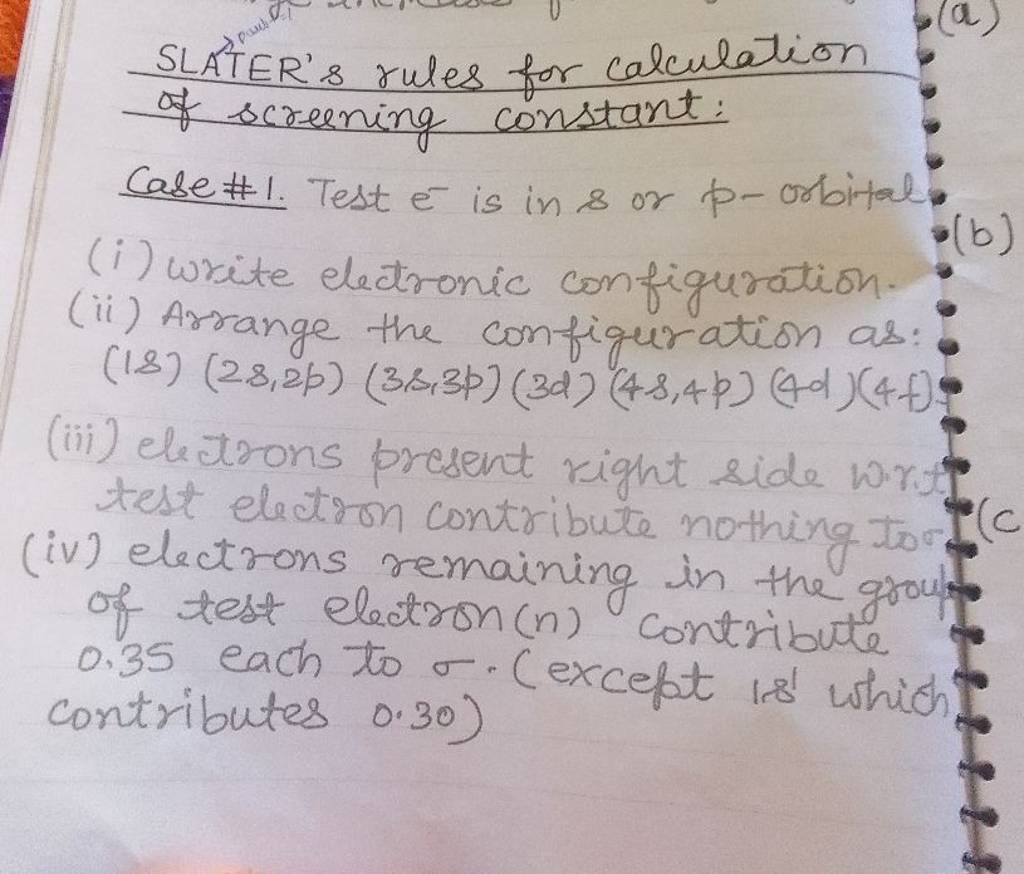 (a)
SLATER's rules for calculation
of screening constant:
Case #1. Test e⁻ is in s or p-orbital
(b)
(i) write electronic configuration.
(ii) Arrange the configuration as:
(1s) (2s,2p) (3s,3p) (3d) (4s,4p) (4d) (4f)
(iii) electrons present right side w.r.t
test electron contribute nothing to σ
(c
(iv) electrons remaining in the group
of test electron (n) contribute
0.35 each to σ. (except 1s' which
contributes 0.30)